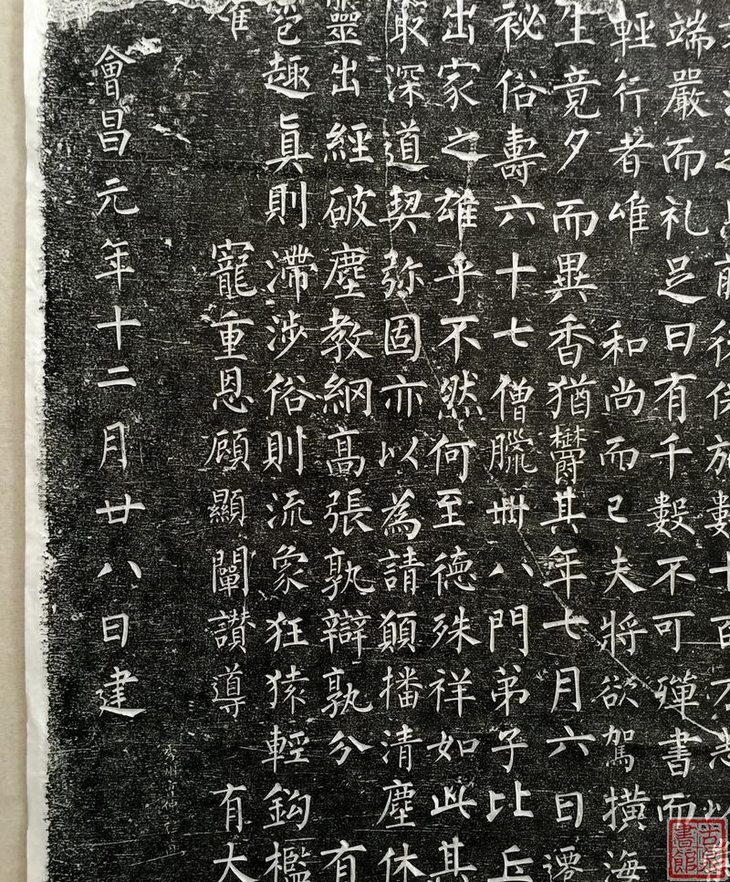 前後供施數十百万悉以
端嚴而礼足日有千數不可殫書而
輕行者唯 和尚而已夫將欲駕橫海
生竟夕而異香猶欝其年七月六日遷
秘俗壽六十七僧臘卌八門弟子比丘
出家之雄乎不然何至德殊祥如此其
最深道契弥固亦以為請願播清塵休
靈出經破塵教網高張孰辯孰分 有
笵趣真則滯涉俗則流象狂猿輕鈎檻
寵重恩顧顯闡讚導 有大
會昌元年十二月廿八日建